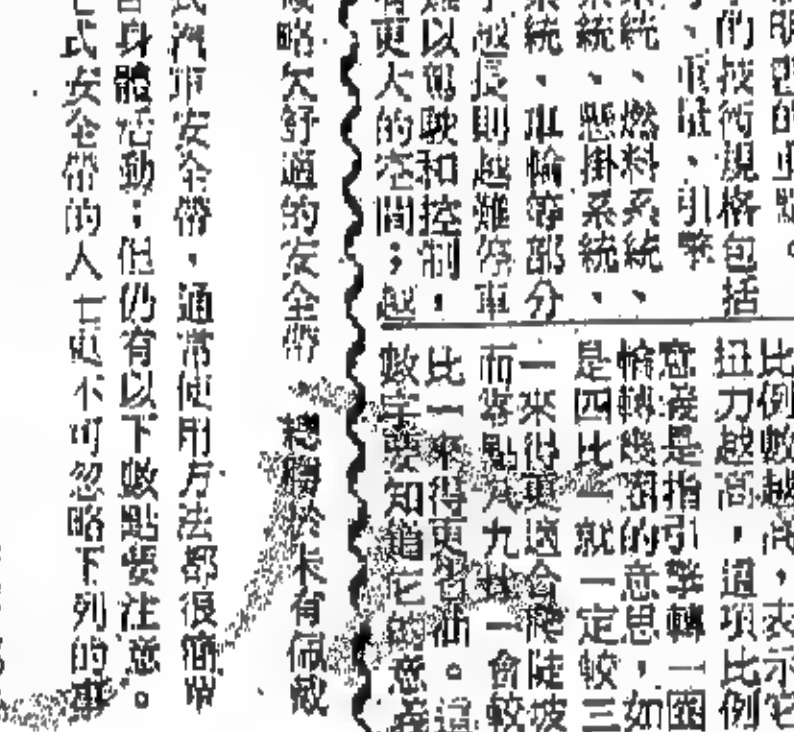 明白的重點。
的技術規格包括
、重量、引擎
系統、燃料系統、
系統、懸掛系統、
系統、車輪等部分
子越長則越難停車
難以駕駛和控制,
有更大的空間;越
比例數越高,表示它
扭力越高,這項比例
意義是指引擎轉一圈
輪轉幾圈的意思,如
是四比一就一定較三
一來得更適合爬陡坡
而零點八九比一會較
比一來得更省油。這
數字要知道它的意義
略欠舒適的安全帶
總勝於未有佩戴
式汽車安全帶,通常使用方法都很簡單
身體活動;但仍有以下數點要注意。
式安全帶的人士更不可忽略下列的事